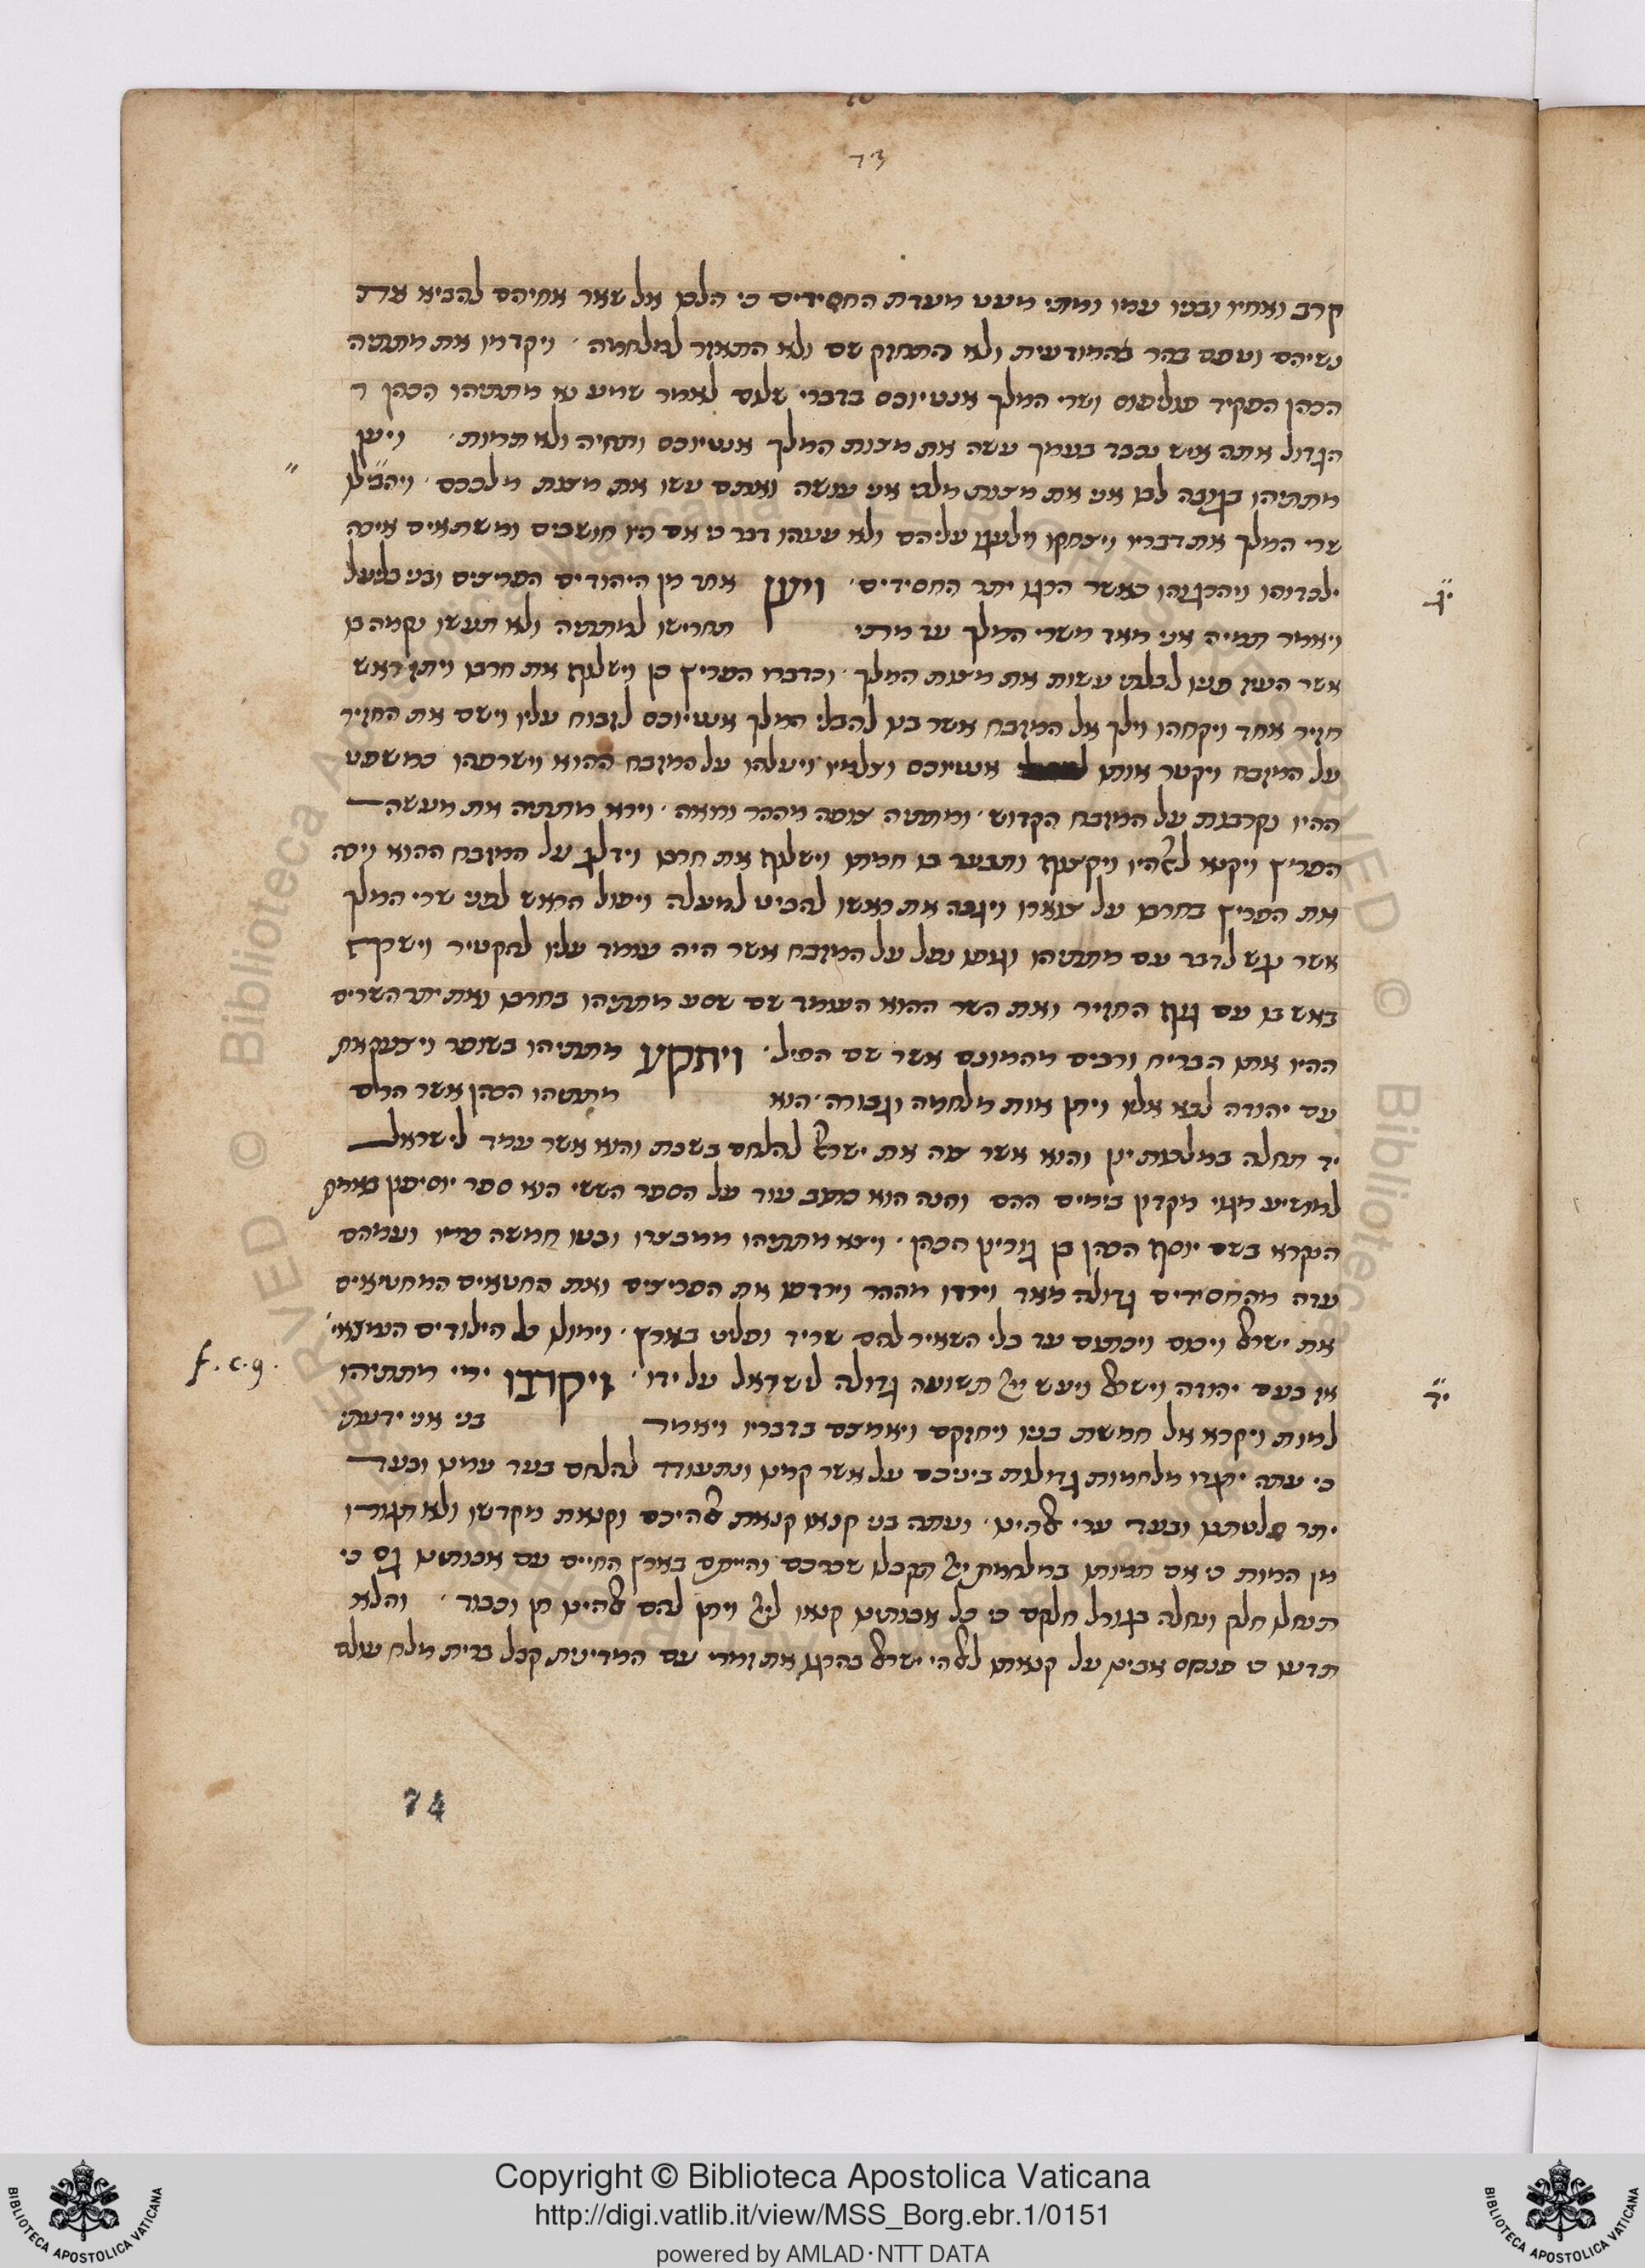 73
קרב ואחיו ובניו עמו ומתי מעט מעדת החסידים כי הלכו אל שאר אחיהם להביא את
נשיהם וטפם בהר המודעית ולא התחזק שם ולא התאזר למלחמה ויקדמו את מתתיה
הכהן הפקיד פיליפוס ושרי המלך אנטיוכס בדברי שלום לאמר שמע נא מתתיהו הכהן ר
הגדול אתה איש נכבד בעמך עשה את מצות המלך אנטיוכס ותחיה ולא תמות ויען
מתתיהו בגובה לבו אני את מצות מלכי אני עושה ואתם עשו את מצות מלככם
שרי המלך את דבריו ויצחקו וילעגו עליהם ולא ענהו דבר כי אם היו חושבים
ילכדוהו ויהרגוהו כאשר הרגו יתר החסידים ויען אחד מן היהודים הפריצים ובני בליעל
ויאמר תמיה אני מאד משרי המלך עד מתי תחרישו למתתיה ולא תעשו נקמה בו
אשר העז פניו לבלתי עשות את מצות המלך וכדברו הפריץ כן וישלוף את חרבו ויתז ראש
חזיר אחד ויקחהו וילך אל המזבח אשר בנו להבלי המלך אנטיוכס לזבוח עליו וישם את החזיר
על המזבח ויקטר אותו אנטיוכס וצלמיו ויעלהו על המזבח ההוא וישרפהו כמשפט
ההיו נקרבות על המזבח הקדוש ומתתיה צופה מההר ורואה וירא מתתיה את מעשה
הפריץ ויקנא לאלהיו ויקצוף ותבער בו חמתו וישלוף את חרבו וידלג על המזבח ההוא ויכה
את הפריץ בחרבו על צוארו ויגבה את ראשו להביט למעלה ויפול הראש לפני שרי המלך
אשר נגש לדבר עם מתתיהו וגופו נפל על המזבח אשר היה עומד עליו להקטיר וישרף
באש בו עם גוף החזיר ואת השר ההוא העומד שם שסע מתתיהו בחרבו ואת יתר השרים
ההיו אתו הבריח ורבים מהמונם אשר שם הפיל ויתקע מתתיהו בשופר ויצעק את
עם יהודה לבא אליו ויתן אות מלחמה וגבורה הוא מתתיהו הכהן אשר הרים
יד תחלה במלכות יון והוא אשר צוה את ישראל להלחם בשבת והוא אשר עמד לישראל
למושיע מגוי מקדון בימים ההם והנה הוא כתוב עוד על הספר הששי הוא ספר יוסיפון
הנקרא בשם יוסף הכהן בן גוריון הכהן ויצא מתתיהו ממבצרו ובניו חמשה עמו ועמהם
עדה מהחסידים גדולה מאד וירדו מההר וירדפו את הפריצים ואת החטאים המחטיאים
את ישראל ויכום ויכתום עד בלי השאיר להם שריד ופליט בארץ וימולו כל הילודים הנמצאי
אז בעם יהודה וישראל ויעש ייי תשועה גדולה לישראל על ידו ויקרבו ימי מתתיהו
למות ויקרא אל חמשת בניו ויחזקם ויאמצם בדבריו ויאמר בני אני ידעתי
כי עתה יתגרו מלחמות גדולות ביניכם על אשר קמנו ונתעודד להלחם בעד עמנו ובעד
יתר פליטתנו ובעד ערי אלהינו ועתה בני קנאו קנאת אלהיכם וקנאת מקדשו ולא תגורו
מן המות כי אם תמותו במלחמת ייי תקבלו שכרכם והייתם בארץ החיים עם אבותינו גם כי
תנחלו חלק ונחלה בגורל חלקם כי כל אבותינו קנאו לייי ויתן להם אלהינו חן וכבוד והלא
תדעו כי פנחס אבינו על קנאתו לאלהי ישראל בהרגו את זמרי עם המדינית קבל ברית מלח עולם
יג
f. c. 9.
יד
74
Copyright © Biblioteca Apostolica Vaticana
http://digi.vatlib.it/view/MSS_Borg.ebr.1/0151
powered by AMLAD·NTT DATA
BIBLIOTECA APOSTOLICA VATICANA
BIBLIOTECA APOSTOLICA VATICANA